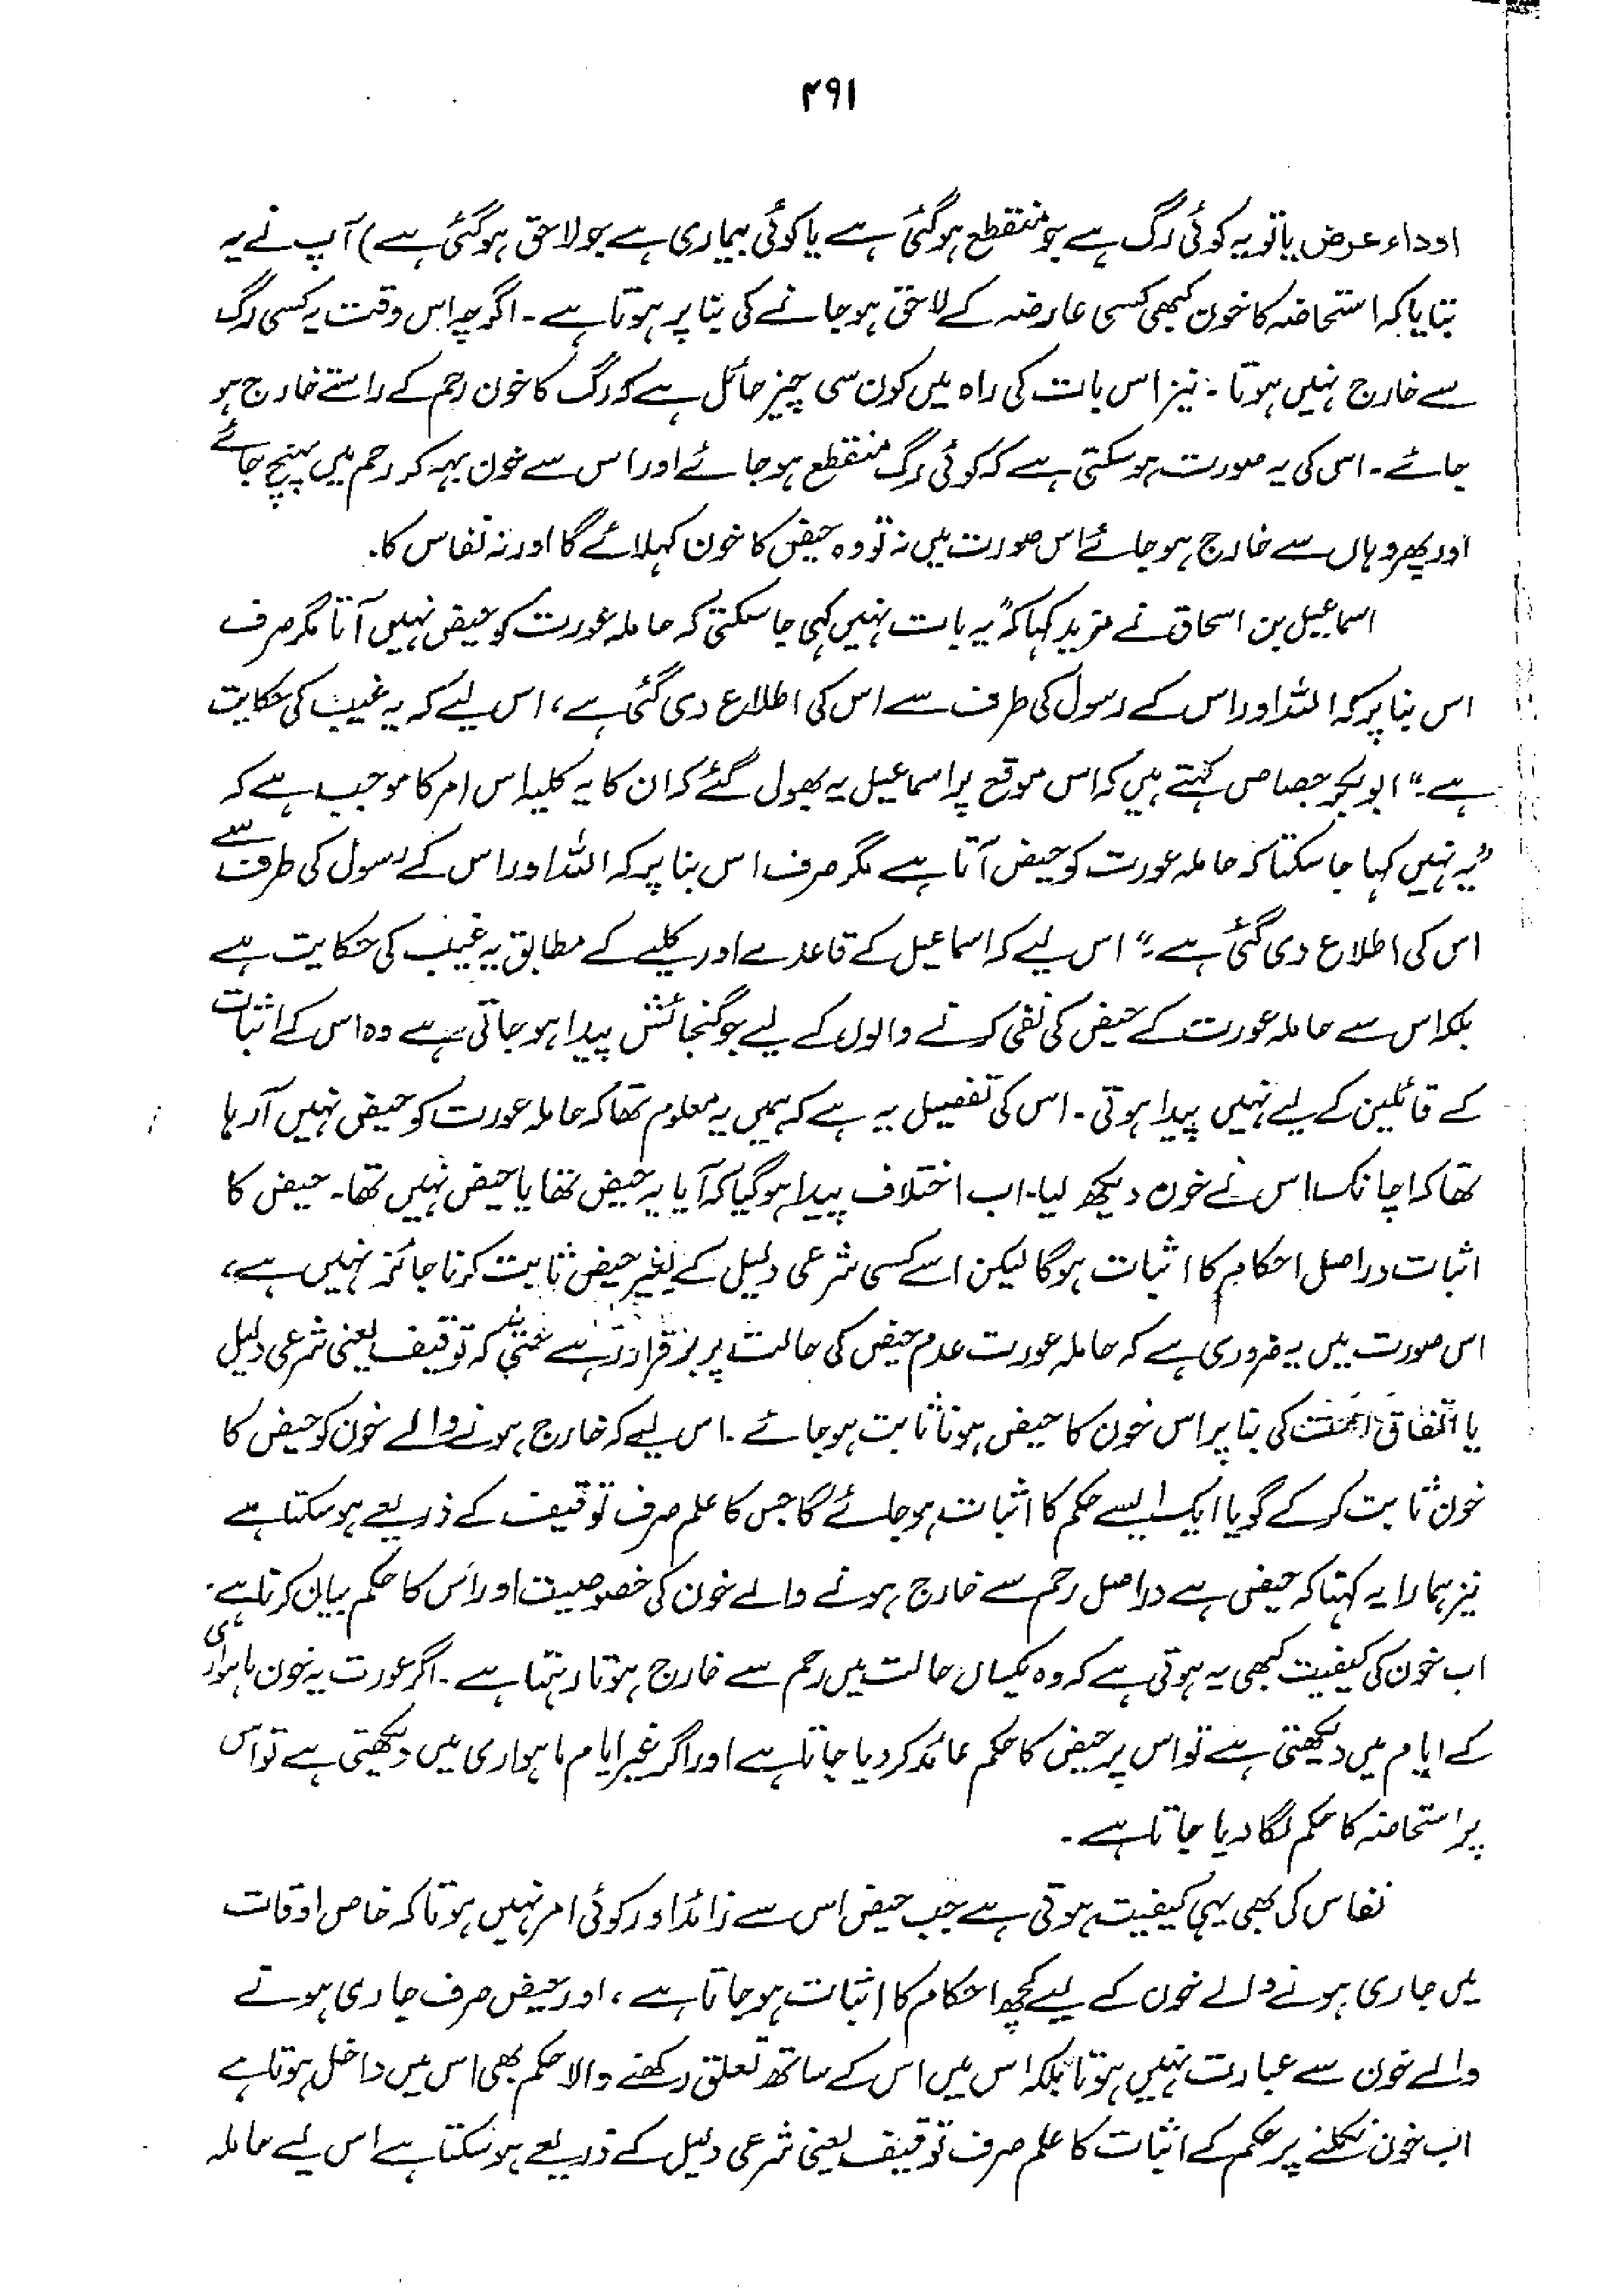 ۲۹۱
اوداء عرض یا تو یہ کوئی رگ ہے جو منقطع ہوگئی ہے یا کوئی بیماری ہے جو لاحق ہوگئی ہے) آپ نے یہ
بتایا کہ استحاضہ کا خون کبھی کسی عارضہ کے لاحق ہو جانے کی بنا پر ہوتا ہے۔ اگرچہ اس وقت یہ کسی رگ
سے خارج نہیں ہوتا۔ نیز اس بات کی راہ میں کون سی چیز حائل ہے کہ رگ کا خون رحم کے راستے خارج ہو
جائے۔ اس کی یہ صورت ہوسکتی ہے کہ کوئی رگ منقطع ہو جائے اور اس سے خون بہہ کر رحم میں پہنچ جائے
اور پھر وہاں سے خارج ہو جائے اس صورت میں نہ تو وہ حیض کا خون کہلائے گا اور نہ نفاس کا۔
اسماعیل بن اسحاق نے مزید کہا کہ "یہ بات نہیں کہی جاسکتی کہ حاملہ عورت کو حیض نہیں آتا مگر صرف
اس بنا پر کہ اللہ اور اس کے رسول کی طرف سے اس کی اطلاع دی گئی ہے، اس لیے کہ یہ غیب کی حکایت
ہے۔" ابوبکر جصاص کہتے ہیں کہ اس موقع پر اسماعیل یہ بھول گئے کہ ان کا یہ کلیہ اس امر کا موجب ہے کہ
"یہ نہیں کہا جاسکتا کہ حاملہ عورت کو حیض آتا ہے مگر صرف اس بنا پر کہ اللہ اور اس کے رسول کی طرف سے
اس کی اطلاع دی گئی ہے۔" اس لیے کہ اسماعیل کے قاعدے اور کلیے کے مطابق یہ غیب کی حکایت ہے
بلکہ اس سے حاملہ عورت کے حیض کی نفی کرنے والوں کے لیے جو گنجائش پیدا ہو جاتی ہے وہ اس کے اثبات
کے قائلین کے لیے نہیں پیدا ہوتی۔ اس کی تفصیل یہ ہے کہ ہمیں یہ معلوم تھا کہ حاملہ عورت کو حیض نہیں آرہا
تھا کہ اچانک اس نے خون دیکھ لیا۔ اب اختلاف پیدا ہوگیا کہ آیا یہ حیض تھا یا حیض نہیں تھا۔ حیض کا
اثبات دراصل احکام کا اثبات ہوگا لیکن اسے کسی شرعی دلیل کے بغیر حیض ثابت کرنا جائز نہیں ہے،
اس صورت میں یہ ضروری ہے کہ حاملہ عورت عدم حیض کی حالت پر برقرار رہے حتیٰ کہ توقیف یعنی شرعی دلیل
یا اتفاق امت کی بنا پر اس خون کا حیض ہونا ثابت ہو جائے۔ اس لیے کہ خارج ہونے والے خون کو حیض کا
خون ثابت کرکے گویا ایک ایسے حکم کا اثبات ہو جائے گا جس کا علم صرف توقیف کے ذریعے ہوسکتا ہے
نیز ہمارا یہ کہنا کہ حیض ہے دراصل رحم سے خارج ہونے والے خون کی خصوصیت اور اس کا حکم بیان کرتا ہے۔
اب خون کی کیفیت کبھی یہ ہوتی ہے کہ وہ یکساں حالت میں رحم سے خارج ہوتا رہتا ہے۔ اگر عورت یہ خون ماہواری
کے ایام میں دیکھتی ہے تو اس پر حیض کا حکم عائد کردیا جاتا ہے اور اگر غیر ایام ماہواری میں دیکھتی ہے تو اس
پر استحاضہ کا حکم لگا دیا جاتا ہے۔
نفاس کی بھی یہی کیفیت ہوتی ہے جب حیض اس سے زائد اور کوئی امر نہیں ہوتا کہ خاص اوقات
میں جاری ہونے والے خون کے لیے کچھ احکام کا اثبات ہو جاتا ہے، اور حیض صرف جاری ہونے
والے خون سے عبارت نہیں ہوتا بلکہ اس میں اس کے ساتھ تعلق رکھنے والا حکم بھی اس میں داخل ہوتا ہے
اب خون نکلنے پر حکم کے اثبات کا علم صرف توقیف یعنی شرعی دلیل کے ذریعے ہوسکتا ہے اس لیے حاملہ